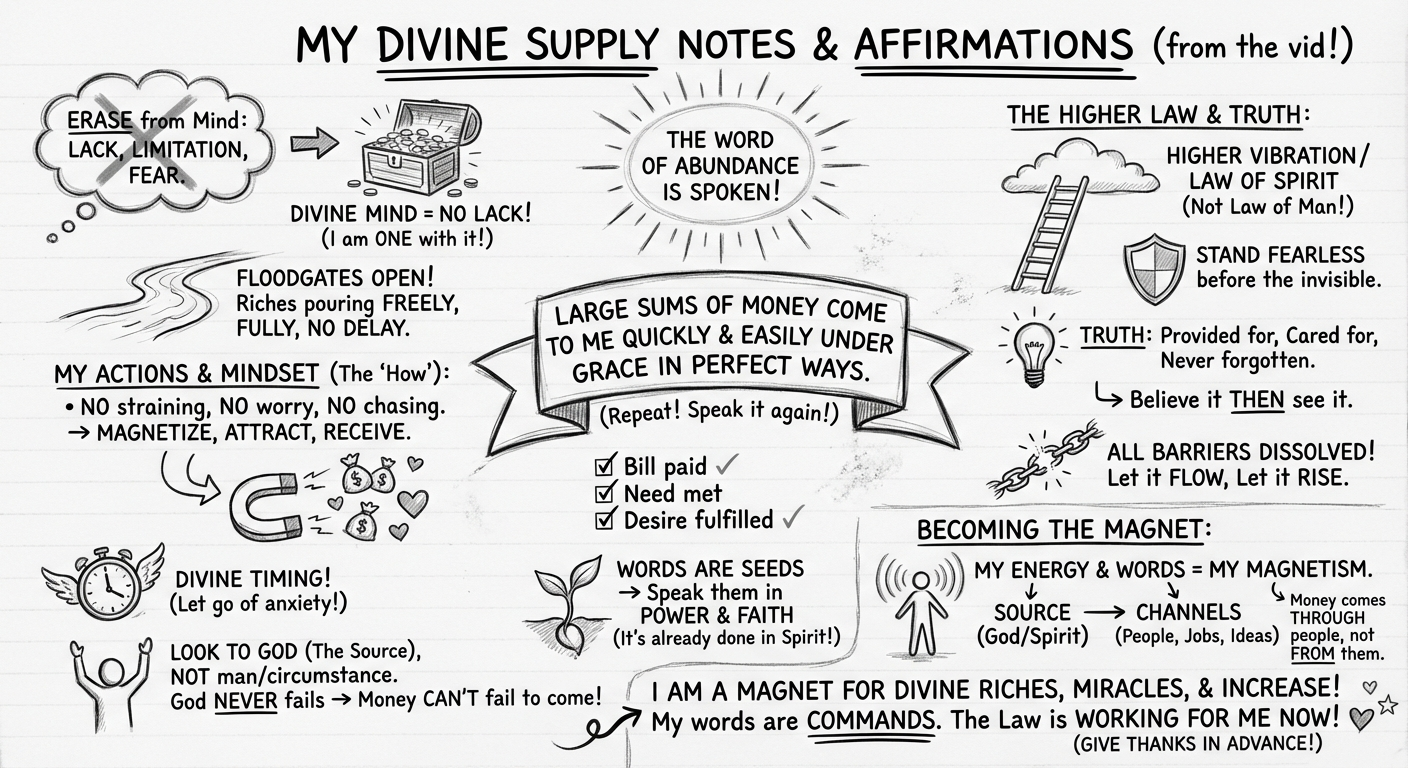 MY DIVINE SUPPLY NOTES & AFFIRMATIONS (from the vid!)
ERASE from Mind:
LACK, LIMITATION,
FEAR.
DIVINE MIND = NO LACK!
(I am ONE with it!)
FLOODGATES OPEN!
Riches pouring FREELY,
FULLY, NO DELAY.
MY ACTIONS & MINDSET (The ‘How’):
• NO straining, NO worry, NO chasing.
→ MAGNETIZE, ATTRACT, RECEIVE.
$ $
$
DIVINE TIMING!
(Let go of anxiety!)
LOOK TO GOD (The Source),
NOT man/circumstance.
God NEVER fails → Money CAN'T fail to come!
THE WORD
OF ABUNDANCE
IS SPOKEN!
LARGE SUMS OF MONEY COME
TO ME QUICKLY & EASILY UNDER
GRACE IN PERFECT WAYS.
(Repeat! Speak it again!)
☑ Bill paid ✓
☑ Need met
☑ Desire fulfilled ✓
WORDS ARE SEEDS
→ Speak them in
POWER & FAITH
(It's already done in Spirit!)
THE HIGHER LAW & TRUTH:
HIGHER VIBRATION/
LAW OF SPIRIT
(Not Law of Man!)
STAND FEARLESS
before the invisible.
TRUTH: Provided for, Cared for,
Never forgotten.
↳ Believe it THEN see it.
ALL BARRIERS DISSOLVED!
Let it FLOW, Let it RISE.
BECOMING THE MAGNET:
MY ENERGY & WORDS = MY MAGNETISM.
SOURCE → CHANNELS
(God/Spirit) (People, Jobs, Ideas)
↳ Money comes
THROUGH
people, not
FROM them.
I AM A MAGNET FOR DIVINE RICHES, MIRACLES, & INCREASE!
My words are COMMANDS. The Law is WORKING FOR ME NOW!
(GIVE THANKS IN ADVANCE!)